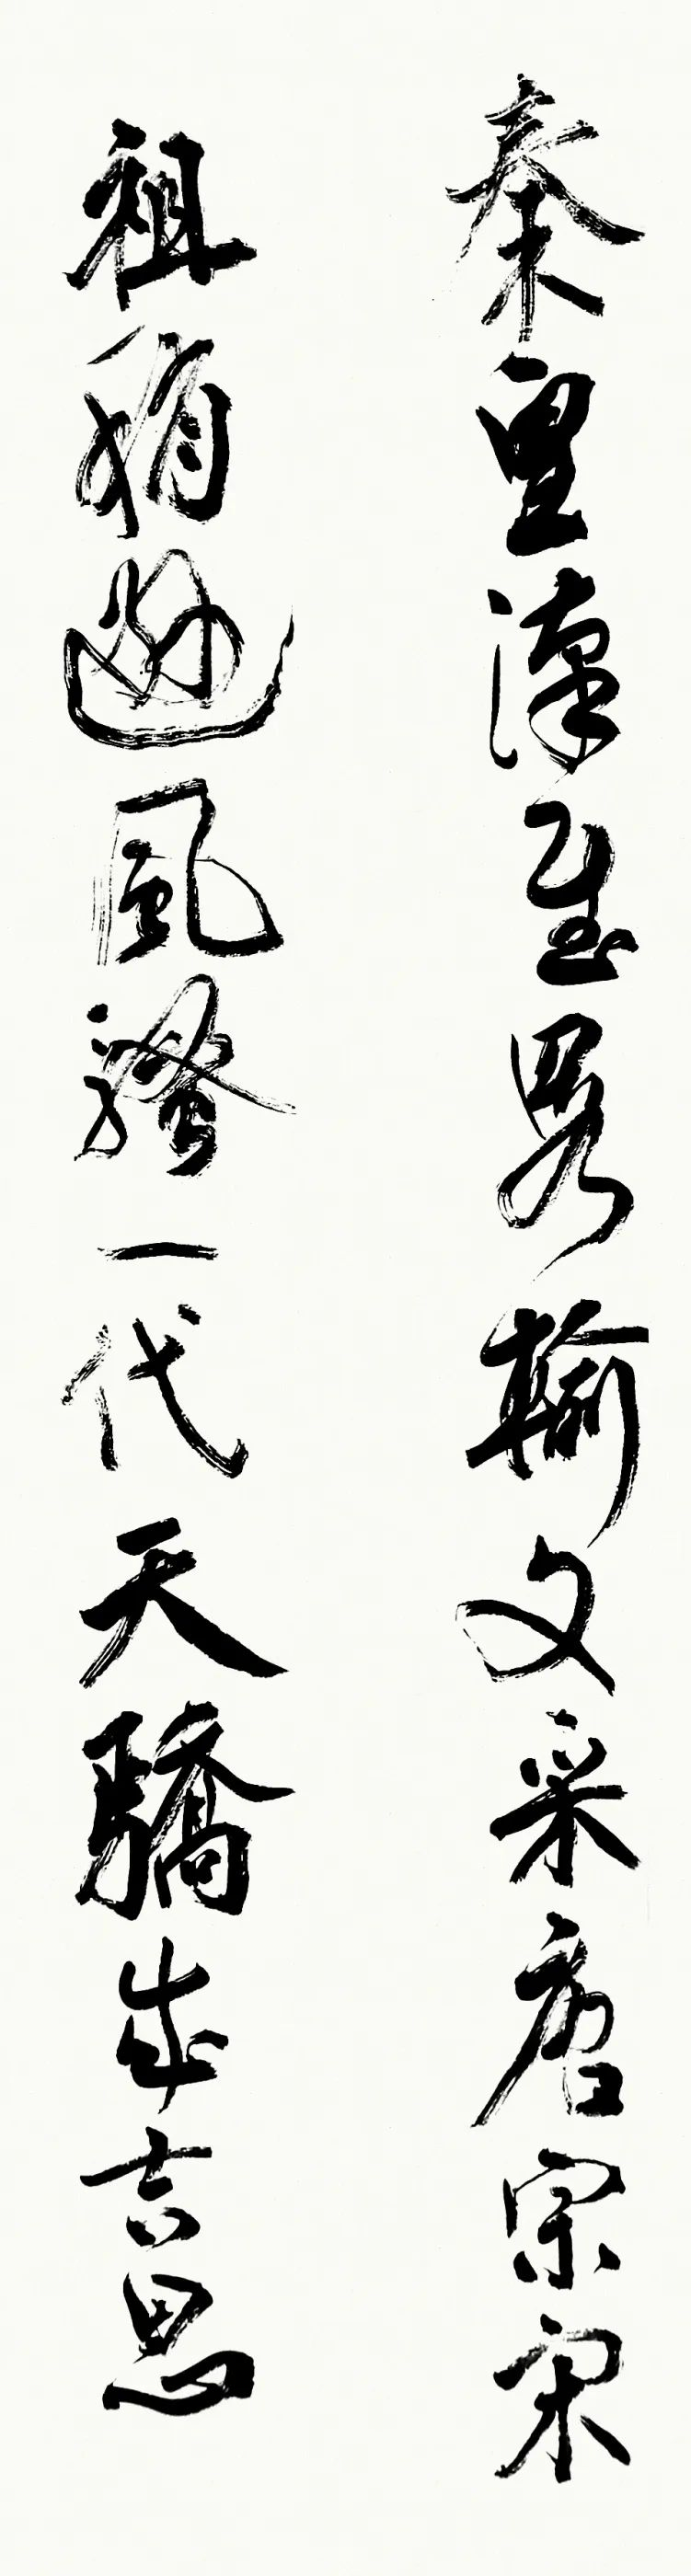 秦皇漢武略輸文采唐宗宋
祖稍遜風騷一代天驕成吉思